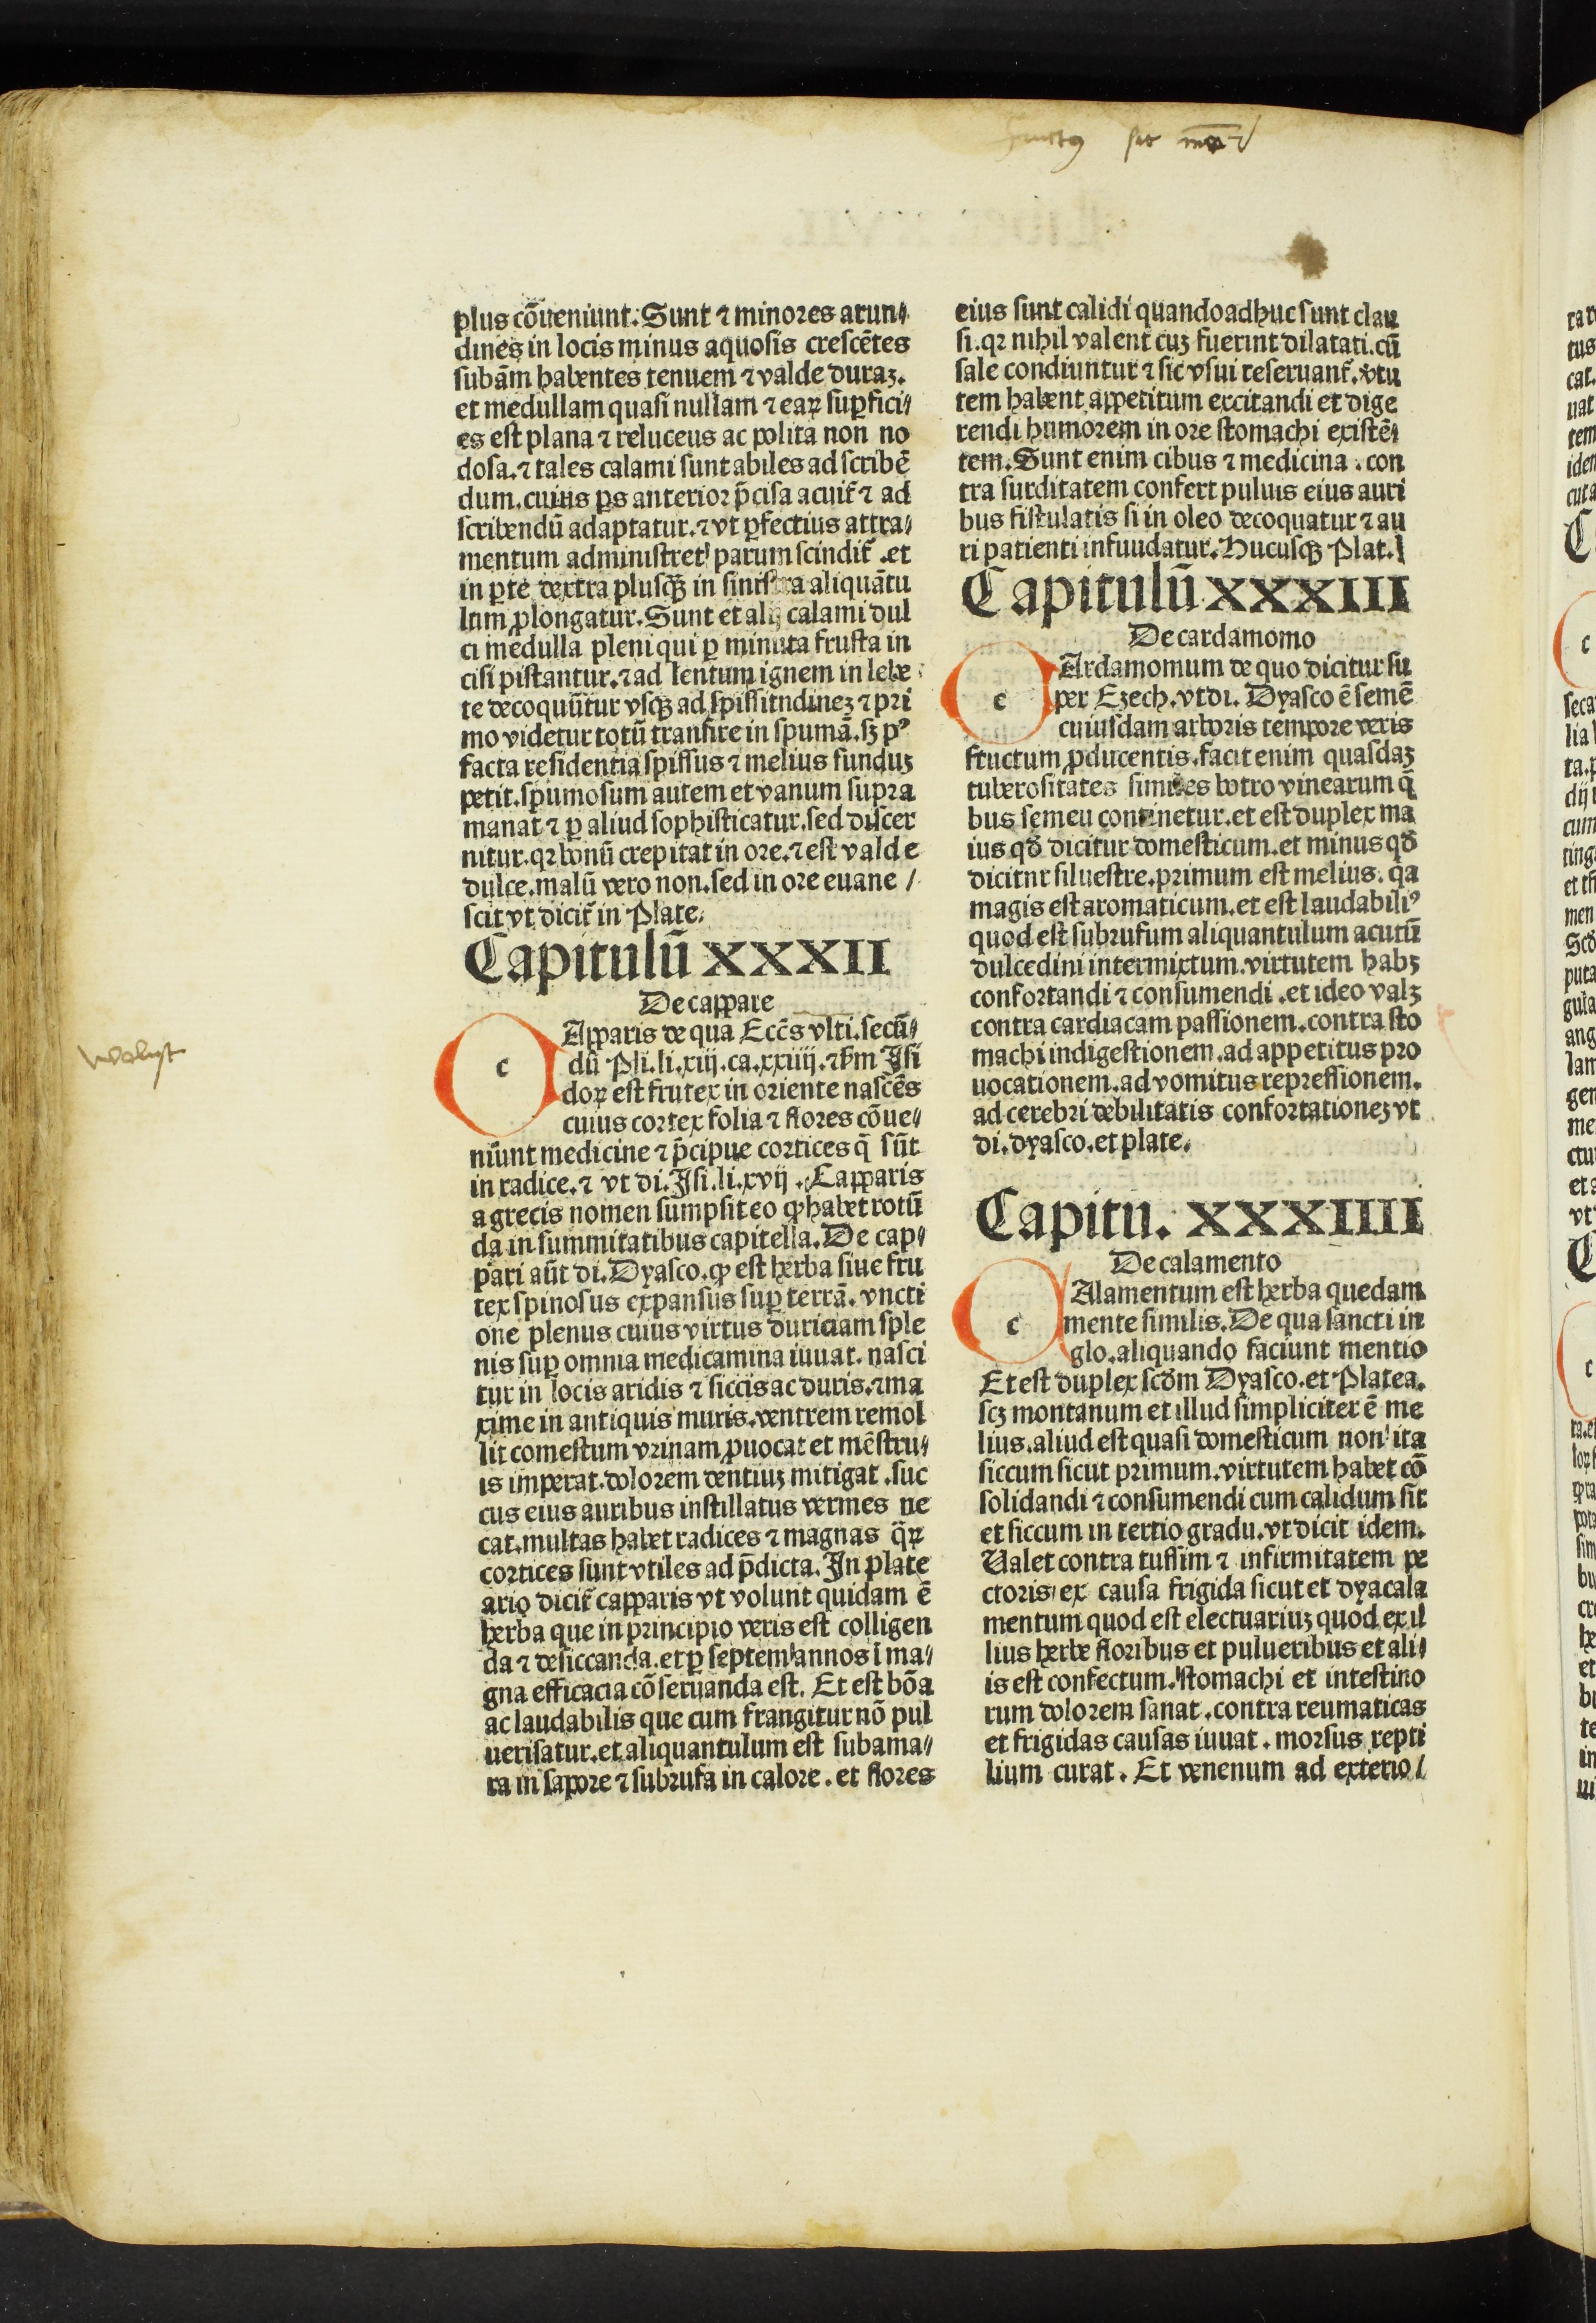 plus cōueniunt. Sunt ⁊ minores arun⸗
dines in locis minus aquosis crescētes
subām habentes tenuem ⁊ valde duraꝫ.
et medullam quasi nullam ⁊ eaꝝ suꝑfici⸗
es est plana ⁊ reluceus ac polita non no
dosa. ⁊ tales calami sunt abiles ad scribē
dum. cuius ꝑs anterior p̄cisa acuit̄ ⁊ ad
scribendū adaptatur. ⁊ vt ꝑfectius attra⸗
mentum administret parum scindit̄ . et
in ꝑte dextra plusqꝫ in sinistra aliquātu
lum ꝓlongatur. Sunt et alij calami dul
ci medulla pleni qui ꝑ minuta frusta in
cisi pistantur. ⁊ ad lentum ignem in lebe
te decoquūtur vsqꝫ ad spissitndineꝫ ⁊ pri
mo videtur totū transire in spumā. sꝫ pꝰ
facta residentia spissus ⁊ melius funduꝫ
petit. spumosum autem et vanum supra
manat ⁊ ꝑ aliud sophisticatur. sed discer
nitur. qꝛ bonū crepitat in ore. ⁊ est valde
dulce. malū vero non. sed in ore euane /
scit vt dicit̄ in Plate.
Capitulū XXXII
De cappare
c Apparis de qua Eccēs vlti. secū⸗
dū Pli. li. xiij. ca. xxiiij. ⁊ scd̄m Isi
doꝝ est frutex in oriente nascēs
cuius cortex folia ⁊ flores cōue⸗
niunt medicine ⁊ p̄cipue cortices q̄ sūt
in radice. ⁊ vt di. Isi. li. xvij . Capparis
a grecis nomen sumpsit eo ꝙ habet rotū
da in summitatibus capitella. De cap⸗
pari aūt di. Dyasco. ꝙ est herba siue fru
tex spinosus expansus suꝑ terrā. vncti
one plenus cuius virtus duriciam sple
nis suꝑ omnia medicamina iuuat. nasci
tur in locis aridis ⁊ siccis ac duris. ⁊ ma
xime in antiquis muris. ventrem remol
lit comestum vrinam ꝓuocat et mēstru⸗
is imperat. dolorem dentiuꝫ mitigat . suc
cus eius auribus instillatus vermes ne
cat. multas habet radices ⁊ magnas q̄ꝝ
cortices sunt vtiles ad p̄dicta. In plate
ario dicit̄ capparis vt volunt quidam ē
herba que in principio veris est colligen
da ⁊ desiccanda. et ꝑ septem annos ī ma⸗
gna efficacia cōseruanda est. Et est bōa
ac laudabilis que cum frangitur nō pul
uerisatur. et aliquantulum est subama⸗
ra in sapore ⁊ subrufa in calore . et flores
eius sunt calidi quandoadhuc sunt clau
si. qꝛ nihil valent cuꝫ fuerint dilatati. cū
sale condiuntur ⁊ sic vsui reseruant̄. v̄tu
tem habent appetitum excitandi et dige
rendi humorem in ore stomachi existē⸗
tem. Sunt enim cibus ⁊ medicina . con
tra surditatem confert puluis eius auri
bus fistulatis si in oleo decoquatur ⁊ au
ri patienti infuudatur. Hucusqꝫ Plat.
Capitulū XXXIII
De cardamomo
c Ardamomum de quo dicitur su
per Ezech. vt di. Dyasco ē semē
cuiusdam arboris tempore veris
fructum ꝓducentis. facit enim quasdaꝫ
tuberositates similes botro vinearum q̄
bus semeu continetur. et est duplex ma
ius qd̄ dicitur domesticum. et minus qd̄
dicitnr siluestre. primum est melius. qa
magis est aromaticum. et est laudabiliꝰ
quod est subrufum aliquantulum acutū
dulcedini intermixtum. virtutem habꝫ
confortandi ⁊ consumendi . et ideo valꝫ
contra cardiacam passionem. contra sto
machi indigestionem. ad appetitus pro
uocationem. ad vomitus repressionem.
ad cerebri debilitatis confortationeꝫ vt
di. dyasco. et plate.
Capitu. XXXIIII
De calamento
c Alamentum est herba quedam
mente similis. De qua sancti in
glo. aliquando faciunt mentio
Et est duplex scd̄m Dyasco. et Platea.
scꝫ montanum et illud simpliciter ē me
lius. aliud est quasi domesticum non ita
siccum sicut primum. virtutem habet cō
solidandi ⁊ consumendi cum calidum sit
et siccum in tertio gradu. vt dicit idem.
Ualet contra tussim ⁊ infirmitatem pe
ctoris ex causa frigida sicut et dyacala
mentum quod est electuariuꝫ quod ex il
lius herbe floribus et pulueribus et ali⸗
is est confectum. stomachi et intestino
rum dolorem sanat . contra reumaticas
et frigidas causas iuuat . morsus repti
lium curat . Et venenum ad exterio/